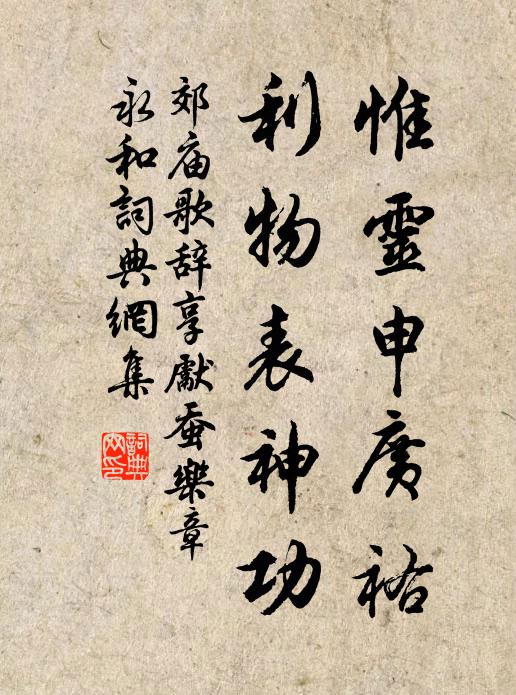 惟靈申廣祐
利物表神功
郊庙歌辞享獻蚕樂章
永和詞典網集
詞典网印